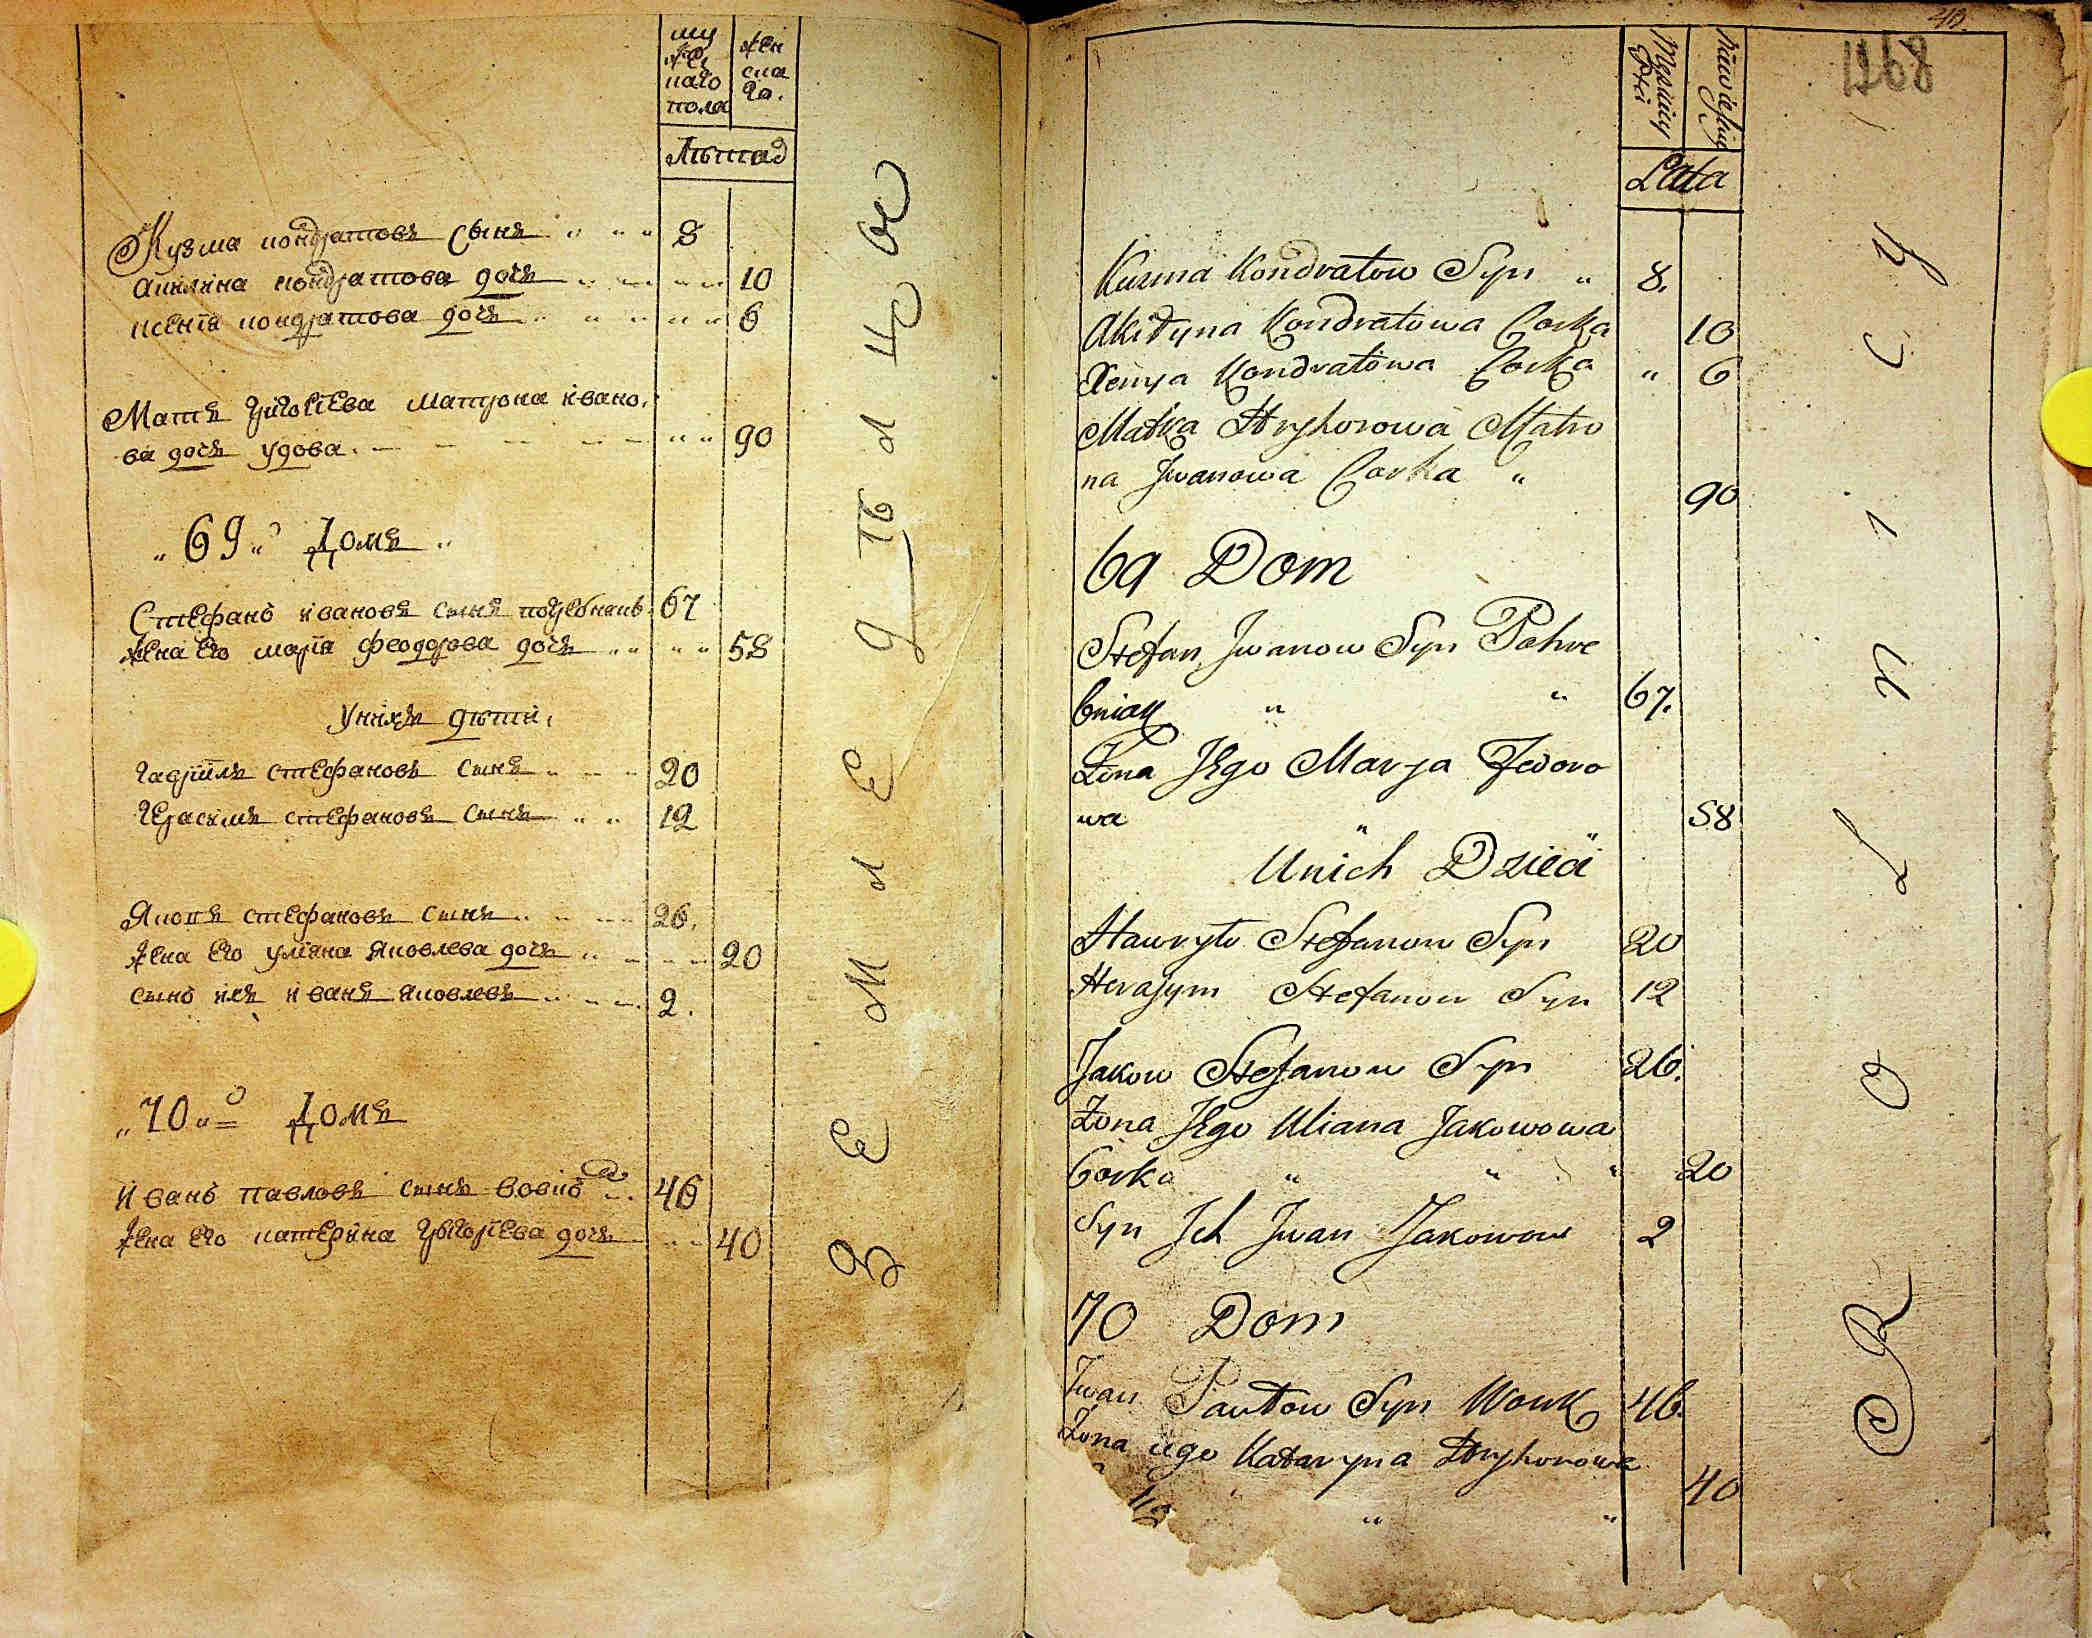 му
же
наго
пола
жен
ска
го.
Лѣтад
Кузма кондратовъ сынъ 8
акилина кондратова дочъ 10
ксенїя кондратова дочъ 6
Матъ григорїева матрона ивано,
ва дочъ удова. 90
69 Домъ
Стефанъ ивановъ сынъ погребнякъ 67
жена Его марїя феодорова дочъ 58
Унихъ дѣти.
гаврїилъ стефановъ сынъ 20
герасимъ стефановъ сынъ 12
Яковъ стефановъ сынъ 26.
жена Его улїяна яковлева дочъ 20
сынъ ихъ иванъ яковлевъ 2.
70 Домъ
иванъ павловъ сынъ вовкъ 46
жена Его катерина григорїева дочъ 40
земледѣлческое
1268
Męskiey
Płci
Lata
Kuzma Kondratow Syn 8.
Akiłyna Kondratowa Corka 10
Xenya Kondratowa Corka 6
Matka Hryhorowa Matro
na Jwanowa Corka 90
69 Dom
Stefan Jwanow Syn Pohre
bniak 67.
Żona Jego Marya Fedoro
wa 58
Unich Dzieci
Hawryło Stefanow Syn 20
Herasym Stefanow Syn 12
Jakow Stefanow Syn 26.
Żona Jego Uliana Jakowowa
Corka 20
Syn Jch Jwan Jakowow 2
70 Dom
Jwan Pawłow Syn Wowk 46.
Żona iego Kataryna Hryhorowa
40
Rolniczy